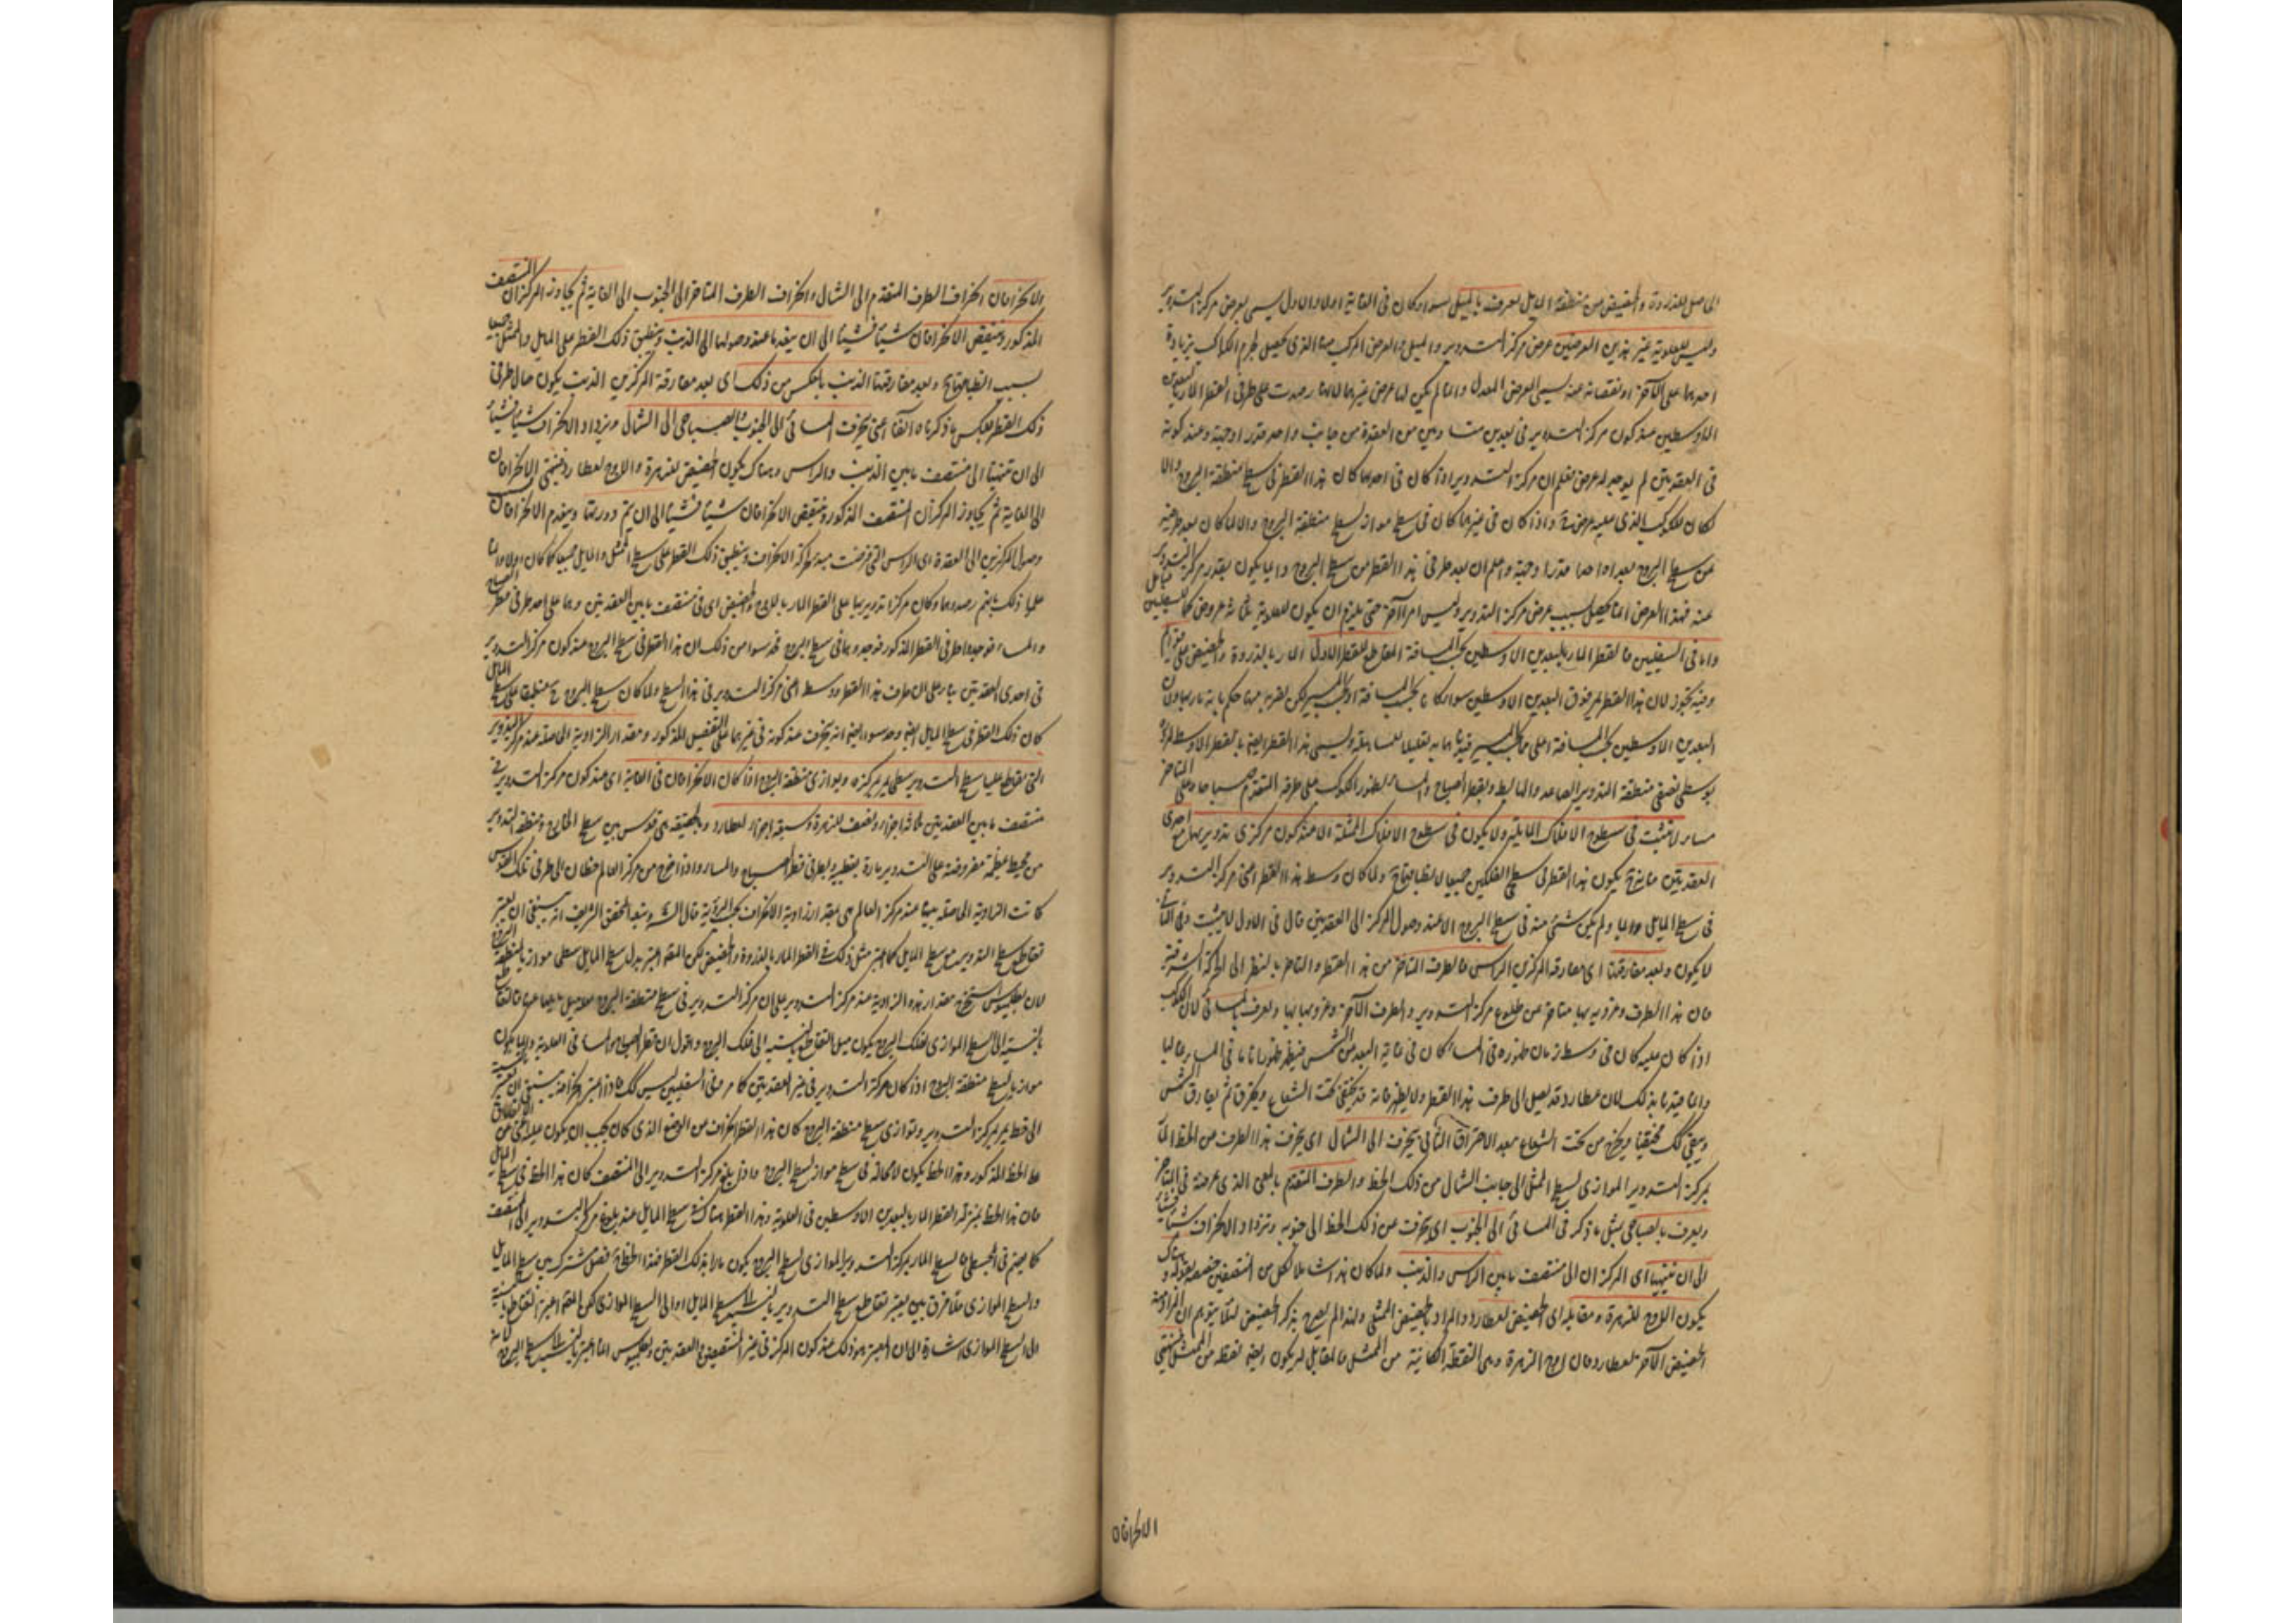 الحاصل للذروة والحضيض من منطقة المايل يعرف بالميل سواء كان في الغاية او لا والاول يسمى بعرض مركز التدوير
وليس للعلوية غير هذين العرضين عرض مركز التدوير والميل والعرض المركب منهما الذي يحصل لجرم الكواكب بزيادة
احدهما على الآخر او نقصانه عنه يسمى العرض المعدل وانما لم يكن لها عرض غيرهما لانها رصدت على طرفي القطر المار بالبعدين
الاوسطين عند كون مركز التدوير في بعدين متساويين من العقدة من جانب واحد قدرا وجهة وعند كونه
في العقدتين لم يوجد له عرض فعلم ان مركز التدوير اذا كان في احدهما كان هذا القطر في سطح منطقة البروج والا
لكان للكوكب الذي عليه عرض واذا كان في غيرهما كان في سطح مواز لسطح منطقة البروج والا لما كان بعد طرفيه
عن سطح البروج بعدا واحدا قدرا وجهة واعلم ان بعد طرفي هذا القطر من سطح البروج دايما يكون بقدر مركز التدوير
عنه فهذا العرض انما يحصل بسبب عرض مركز التدوير وليس امرا آخر حتى يلزم ان يكون للعلوية ثلثة عروض كما للسفليين
واما في السفليين فالقطر المار بالبعدين الاوسطين بحسب المسافة المقاطع للقطر الاول المار بالذروة والحضيض على قوايم
وفيه تجوز لان هذا القطر يمر فوق البعدين الاوسطين سواء كانا بحسب المسافة او بحسب المسير لكن لقربه منهما حكم بانه مار بهما وان
البعدين الاوسطين بحسب المسافة اعلى مما بحسب المسير ويسمى هذا القطر ايضا بالقطر الاوسط لمروره
بوسطي نصفي منطقة التدوير الصاعد والهابط وبقطر الصباح والمساء لظهور الكوكب على طرفه المتقدم صباحا وعلى المتاخر
مساء لا تثبت في سطوح الافلاك المايلة ولا يكون في سطوح الافلاك الممثلة الا عند كون مركزي تدويريهما مع احدى
العقدتين فانه ح يكون هذا القطر في سطح الفلكين جميعا لانطباقهما ح ولما كان وسط هذا القطر اعني مركز التدوير
في سطح المايل دايما ولم يكن شئ منه في سطح البروج الا عند وصول المركز الى العقدتين قال في الاول لا يثبت وفي الثاني
لا يكون وبعد مفارقتها اى مفارقة المركزين الراس فالطرف المتاخر من هذا القطر والتاخر بالنظر الى الحركة الشرقية
فان هذا الطرف وغروبه متاخر عن طلوع مركز التدوير والطرف الآخر وغروبهما ويعرف بالمسائي لان الكوكب
اذا كان عليه كان في وسط زمان ظهوره في المساء كان في غاية البعد من الشمس فيظهر ظهورا تاما في المساء غالبا
وانما قيدنا بذلك لان عطارد قد يصل الى طرف هذا القطر ولا يظهر فانه قد يختفي تحت الشعاع ويحترق ثم يفارق الشمس
ويبقى كك مختفيا ويخرج من تحت الشعاع بعد الاحتراق الثاني ينحرف الى الشمال اى ينحرف هذا الطرف من الخط المار
بمركز التدوير الموازي لسطح الممثل الى جانب الشمال من ذلك الخط والطرف المتقدم بالمعنى الذي عرفته في المتاخر
ويعرف بالصباحي بمثل ما ذكر في المسائي الى الجنوب اى ينحرف عن ذلك الخط الى جنوبه ويزداد الانحراف شيئا فشيئا
الى ان ينتهيا اى المركزان الى منتصف ما بين الراس والذنب ولما كان هذا شاملا لكل من النصفين خصصه بقوله وهناك
يكون الاوج للزهرة ومقابله اى الحضيض لعطارد والمراد بالحضيض الممثلي ولهذا لم يصرح بذكر الحضيض لئلا يتوهم ان المراد منه
الحضيض الآخر لعطارد فان اوج الزهرة وهي النقطة الكائنة من الممثل فالمقابل له يكون ايضا نقطة من الممثل فينتهي
الانحرافان
الانحرافان انحراف الطرف المتقدم الى الشمال وانحراف الطرف المتاخر الى الجنوب الى الغاية ثم يجاوز المركزان المنتصف
المذكور وينتقص الانحرافان شيئا فشيئا الى ان ينعدما عند وصولهما الى الذنب وينطبق ذلك القطر على المايل والممثل جميعا
بسبب انطباقهما ح وبعد مفارقتهما الذنب بالعكس من ذلك اى بعد مفارقة المركزين الذنب يكون حال طرفي
ذلك القطر بعكس ما ذكرناه آنفا اعني ينحرف المسائي الى الجنوب والصباحي الى الشمال ويزداد الانحراف شيئا فشيئا
الى ان ينتهيا الى منتصف ما بين الذنب والراس وهناك يكون الحضيض للزهرة والاوج لعطارد فينتهي الانحرافان
الى الغاية ثم يجاوز المركزان المنتصف المذكور وينتقص الانحرافان شيئا فشيئا الى ان يتم دورتهما وينعدم الانحرافان عند
وصول المركزين الى العقدة اى الراس التي فرضت مبدء حركة الانحراف وينطبق ذلك القطر على سطح الممثل والمايل جميعا كما كان اولا وانما
علموا ذلك بانهم رصدوهما وكان مركزا تدويريهما على القطر المار بالاوج والحضيض اى في منتصف ما بين العقدتين وهما على احد طرفي قطر الصباح
والمساء فوجدوا طرفي القطر المذكور فوجدوهما في سطح البروج فحدسوا من ذلك ان هذا القطر في سطح البروج عند كون مركز التدوير
في احدى العقدتين بناء على ان طرف هذا القطر ووسطه اعني مركز التدوير في هذا السطح ولما كان سطح البروج ح منطبقا على سطح المايل
كان ذلك القطر في سطح المايل ايضا وحدسوا ايضا انه ينحرف عند كونه في غيرهما على التفصيل المذكور ومقدار الزاوية الحاصلة عند مركز التدوير
التي يقاطع عليها سطح التدوير سطحا يمر بمركزه ويوازي منطقة البروج اذا كان الانحرافان في الغاية اى عند كون مركز التدوير في
منتصف ما بين العقدتين ثلاثة اجزاء ونصف للزهرة وسبعة اجزاء لعطارد وبالحقيقة هي قوس بين سطح الخارج ومنطقة التدوير
من محيط عظيمة مفروضة على التدوير مارة بقطبيه وبطرفي قطر الصباح والمساء واذا اخرج من مركز العالم خطان الى طرفي تلك القوس
كانت الزاوية الحاصلة بينهما عند مركز العالم هي مقدار زاوية الانحراف بحسب الرؤية قال الشه وتبعه المحقق الشريف انه ينبغي ان يعتبر
تقاطع سطح التدوير مع سطح المايل كما اعتبر مثل ذلك في القطر المار بالذروة والحضيض لكن المصنف اعتبر بدل سطح المايل سطحا موازيا لمنطقة البروج
لان بطلميوس استخرج مقدار هذه الزاوية عند مركز التدوير على ان مركز التدوير في سطح منطقة البروج
بالنسبة الى السطح الموازي لفلك البروج يكون ميل التقاطع بالنسبة الى فلك البروج واقول ان قطر الصباح والمساء في العلوية دايما يكون
موازيا لسطح منطقة البروج اذا كان مركز التدوير في غير العقدتين كما مر وفي السفليين ليس كك فاذا اعتبر انحرافه ينبغي ان يعتبر بالنسبة
الى خط يمر بمركز التدوير ويوازي سطح منطقة البروج كان هذا القطر انحراف من الوضع الذي كان يجب ان يكون عليه اعني من الانطباق
على الخط المذكور وهذا الخط يكون لا محالة في سطح مواز لسطح البروج فاذا بلغ مركز التدوير الى المنتصف كان هذا الخط في سطح المايل
فان هذا الخط بمنزلة القطر المار بالبعدين الاوسطين في العلوية وهذا القطر هناك في سطح المايل عند بلوغ مركز التدوير الى المنتصف
كما بين في المجسطي فالسطح المار بمركز التدوير الموازي لسطح البروج يكون مارا بذلك القطر فهذا الخط ح فصل مشترك بين سطح المايل
والسطح الموازي فلا فرق بين ان يعتبر تقاطع سطح التدوير بالنسبة الى سطح المايل او الى السطح الموازي لكن المصنف اعتبر التقاطع بالنسبة
الى السطح الموازي اشارة الى ان المعتبر هو ذلك عند كون المركز في غير المنتصفين والعقدتين وبطلميوس انما اعتبر بالنسبة الى سطح البروج